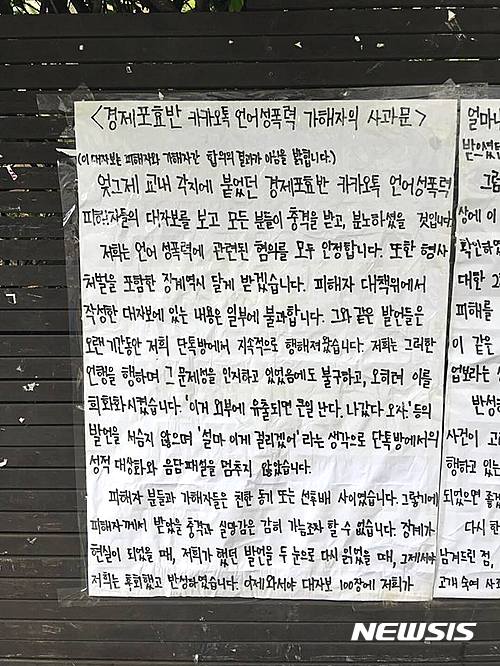 <경제포효반 카카오톡 언어성폭력 가해자의 사과문>
(이 대자보는 피해자와 가해자간 합의의 결과가 아님을 밝힙니다.)
엊그제 교내 각지에 붙었던 경제포효반 카카오톡 언어성폭력
피해자들의 대자보를 보고 모든 분들이 충격을 받고, 분노하셨을 것입니다.
저희는 언어 성폭력에 관련된 혐의를 모두 인정합니다. 또한 형사
처벌을 포함한 징계역시 달게 받겠습니다. 피해자 대책위에서
작성한 대자보에 있는 내용은 일부에 불과합니다. 그와 같은 발언들은
오랜 기간동안 저희 단톡방에서 지속적으로 행해져왔습니다. 저희는 그러한
언행을 행하며 그 문제성을 인지하고 있었음에도 불구하고, 오히려 이를
희화화시켰습니다. '이거 외부에 유출되면 큰일 난다. 나갔다 오자.' 등의
발언을 서슴지 않으며 '설마 이게 걸리겠어' 라는 생각으로 단톡방에서의
성적 대상화와 음담패설을 멈추지 않았습니다.
피해자 분들과 가해자들은 친한 동기 또는 선후배 사이였습니다. 그렇기에
피해자께서 받았을 충격과 실망감은 감히 가늠조차 할 수 없습니다. 징계가
현실이 되었을 때, 저희가 했던 발언을 두 눈으로 다시 읽었을 때, 그제서야
저희는 후회했고 반성하였습니다. 이제와서야 대자보 100장에 저희가
얼마나
받았었
그럼
상에 이
확인하였
대한 2차
피해를
이 같은
업보라는
반성하
사건이 고
행하고 있는
되었으면 좋겠
다시 한
남겨드린 점,
고개 숙여 사죄
NEWSIS